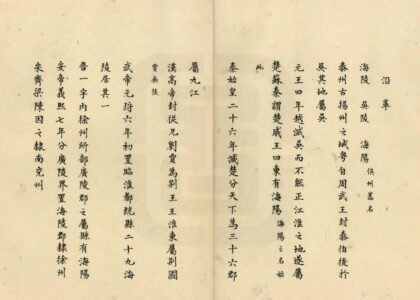 沿革
海陵 吳陵 海陽 俱州舊名
泰州古揚州之域粵自周武王封泰伯後於
吳其地屬吳
元王四年越滅吳而不能正江淮之地遂屬
楚蘇秦謂楚威王曰東有海陽 海陽之名始
此
秦始皇二十六年滅楚分天下為三十六郡
屬九江
漢高帝封從兄劉賈為荊王王淮東屬荊國
賈無後
武帝元狩六年初置臨淮郡統縣二十九海
陵居其一
晉一宇內徐州所部廣陵郡之屬縣有海陽
安帝義熙七年分廣陵界置海陵郡隸徐州
宋齊梁陳因之隸南兗州